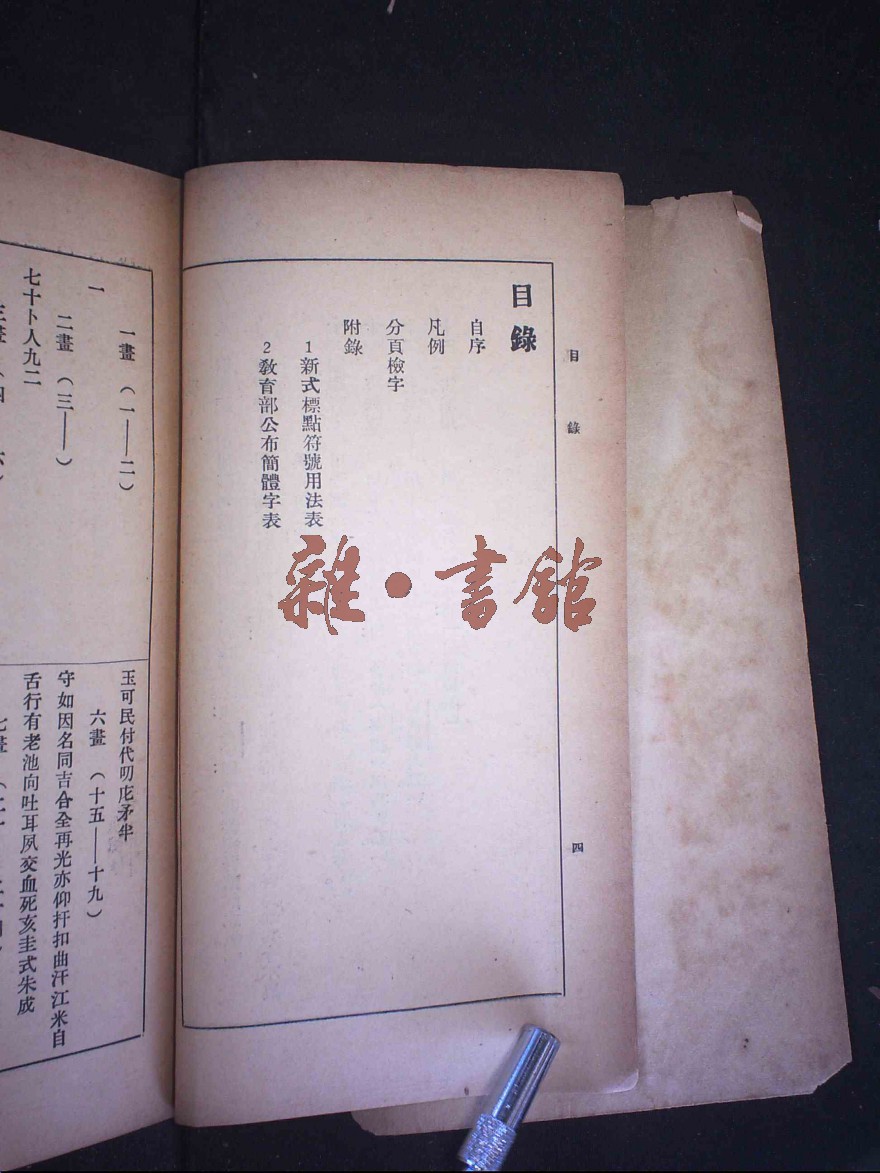 目錄
四
目錄
自序
凡例
分頁檢字
附錄
1新式標點符號用法表
2教育部公布簡體字表
雜·書館
一畫（一——二）
一
二畫（三——）
七十卜人九二
玉可民付代叨庀矛半
六畫（十五——十九）
守如因名同吉合全再光亦仰扞扣曲汗江米自
舌行有老池向吐耳夙交血死亥圭式朱成